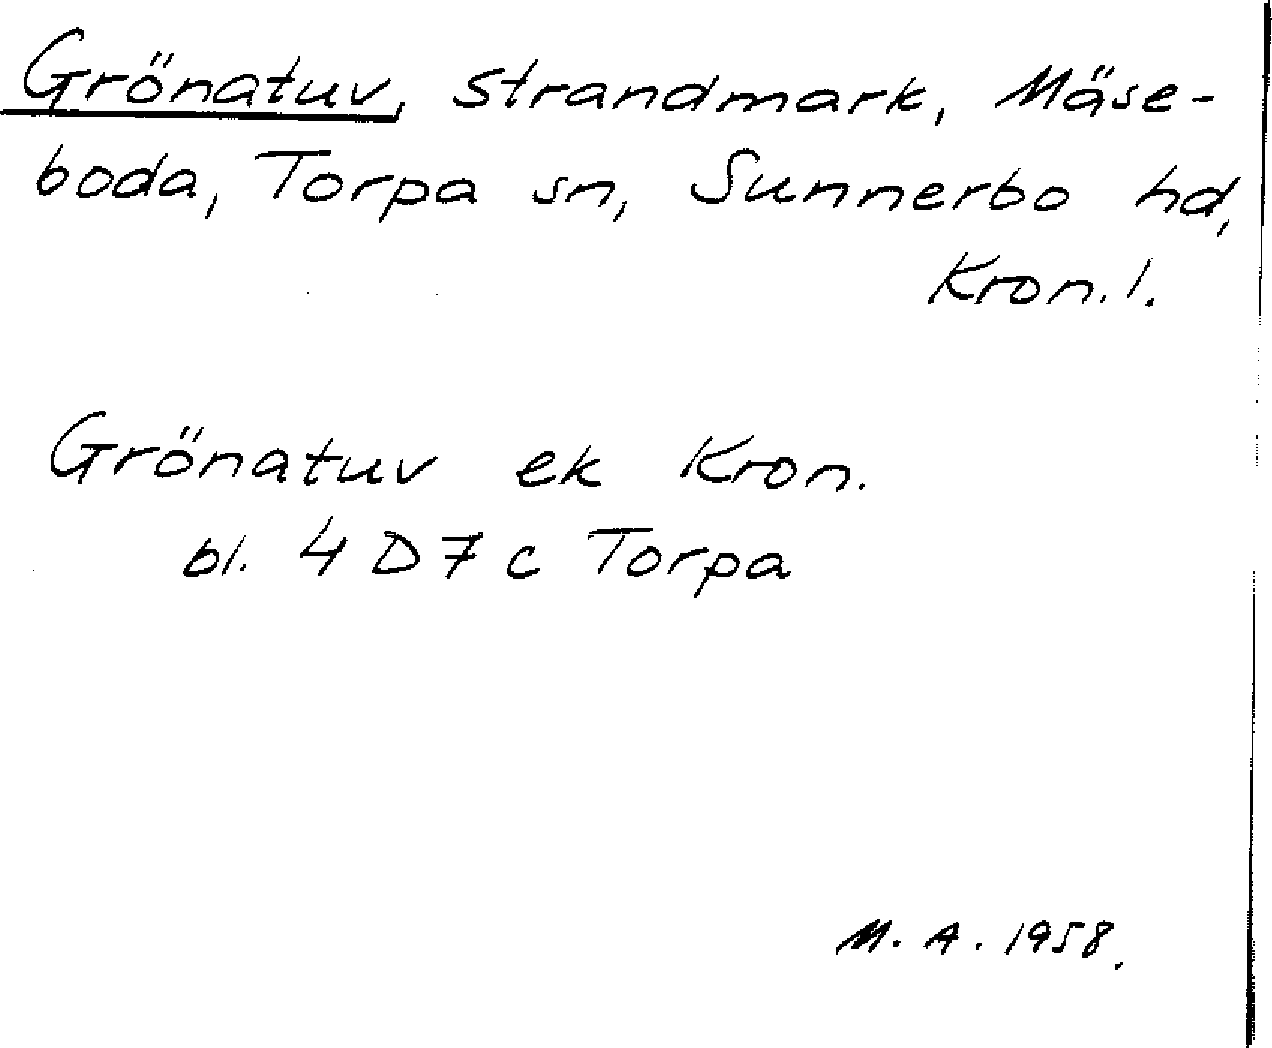 Grönatuv, strandmark, Mäse-
boda, Torpa sn, Sunnerbo hd,
Kron. l.
Grönatuv ek Kron.
bl. 4 D 7 c Torpa
M. A. 1958.